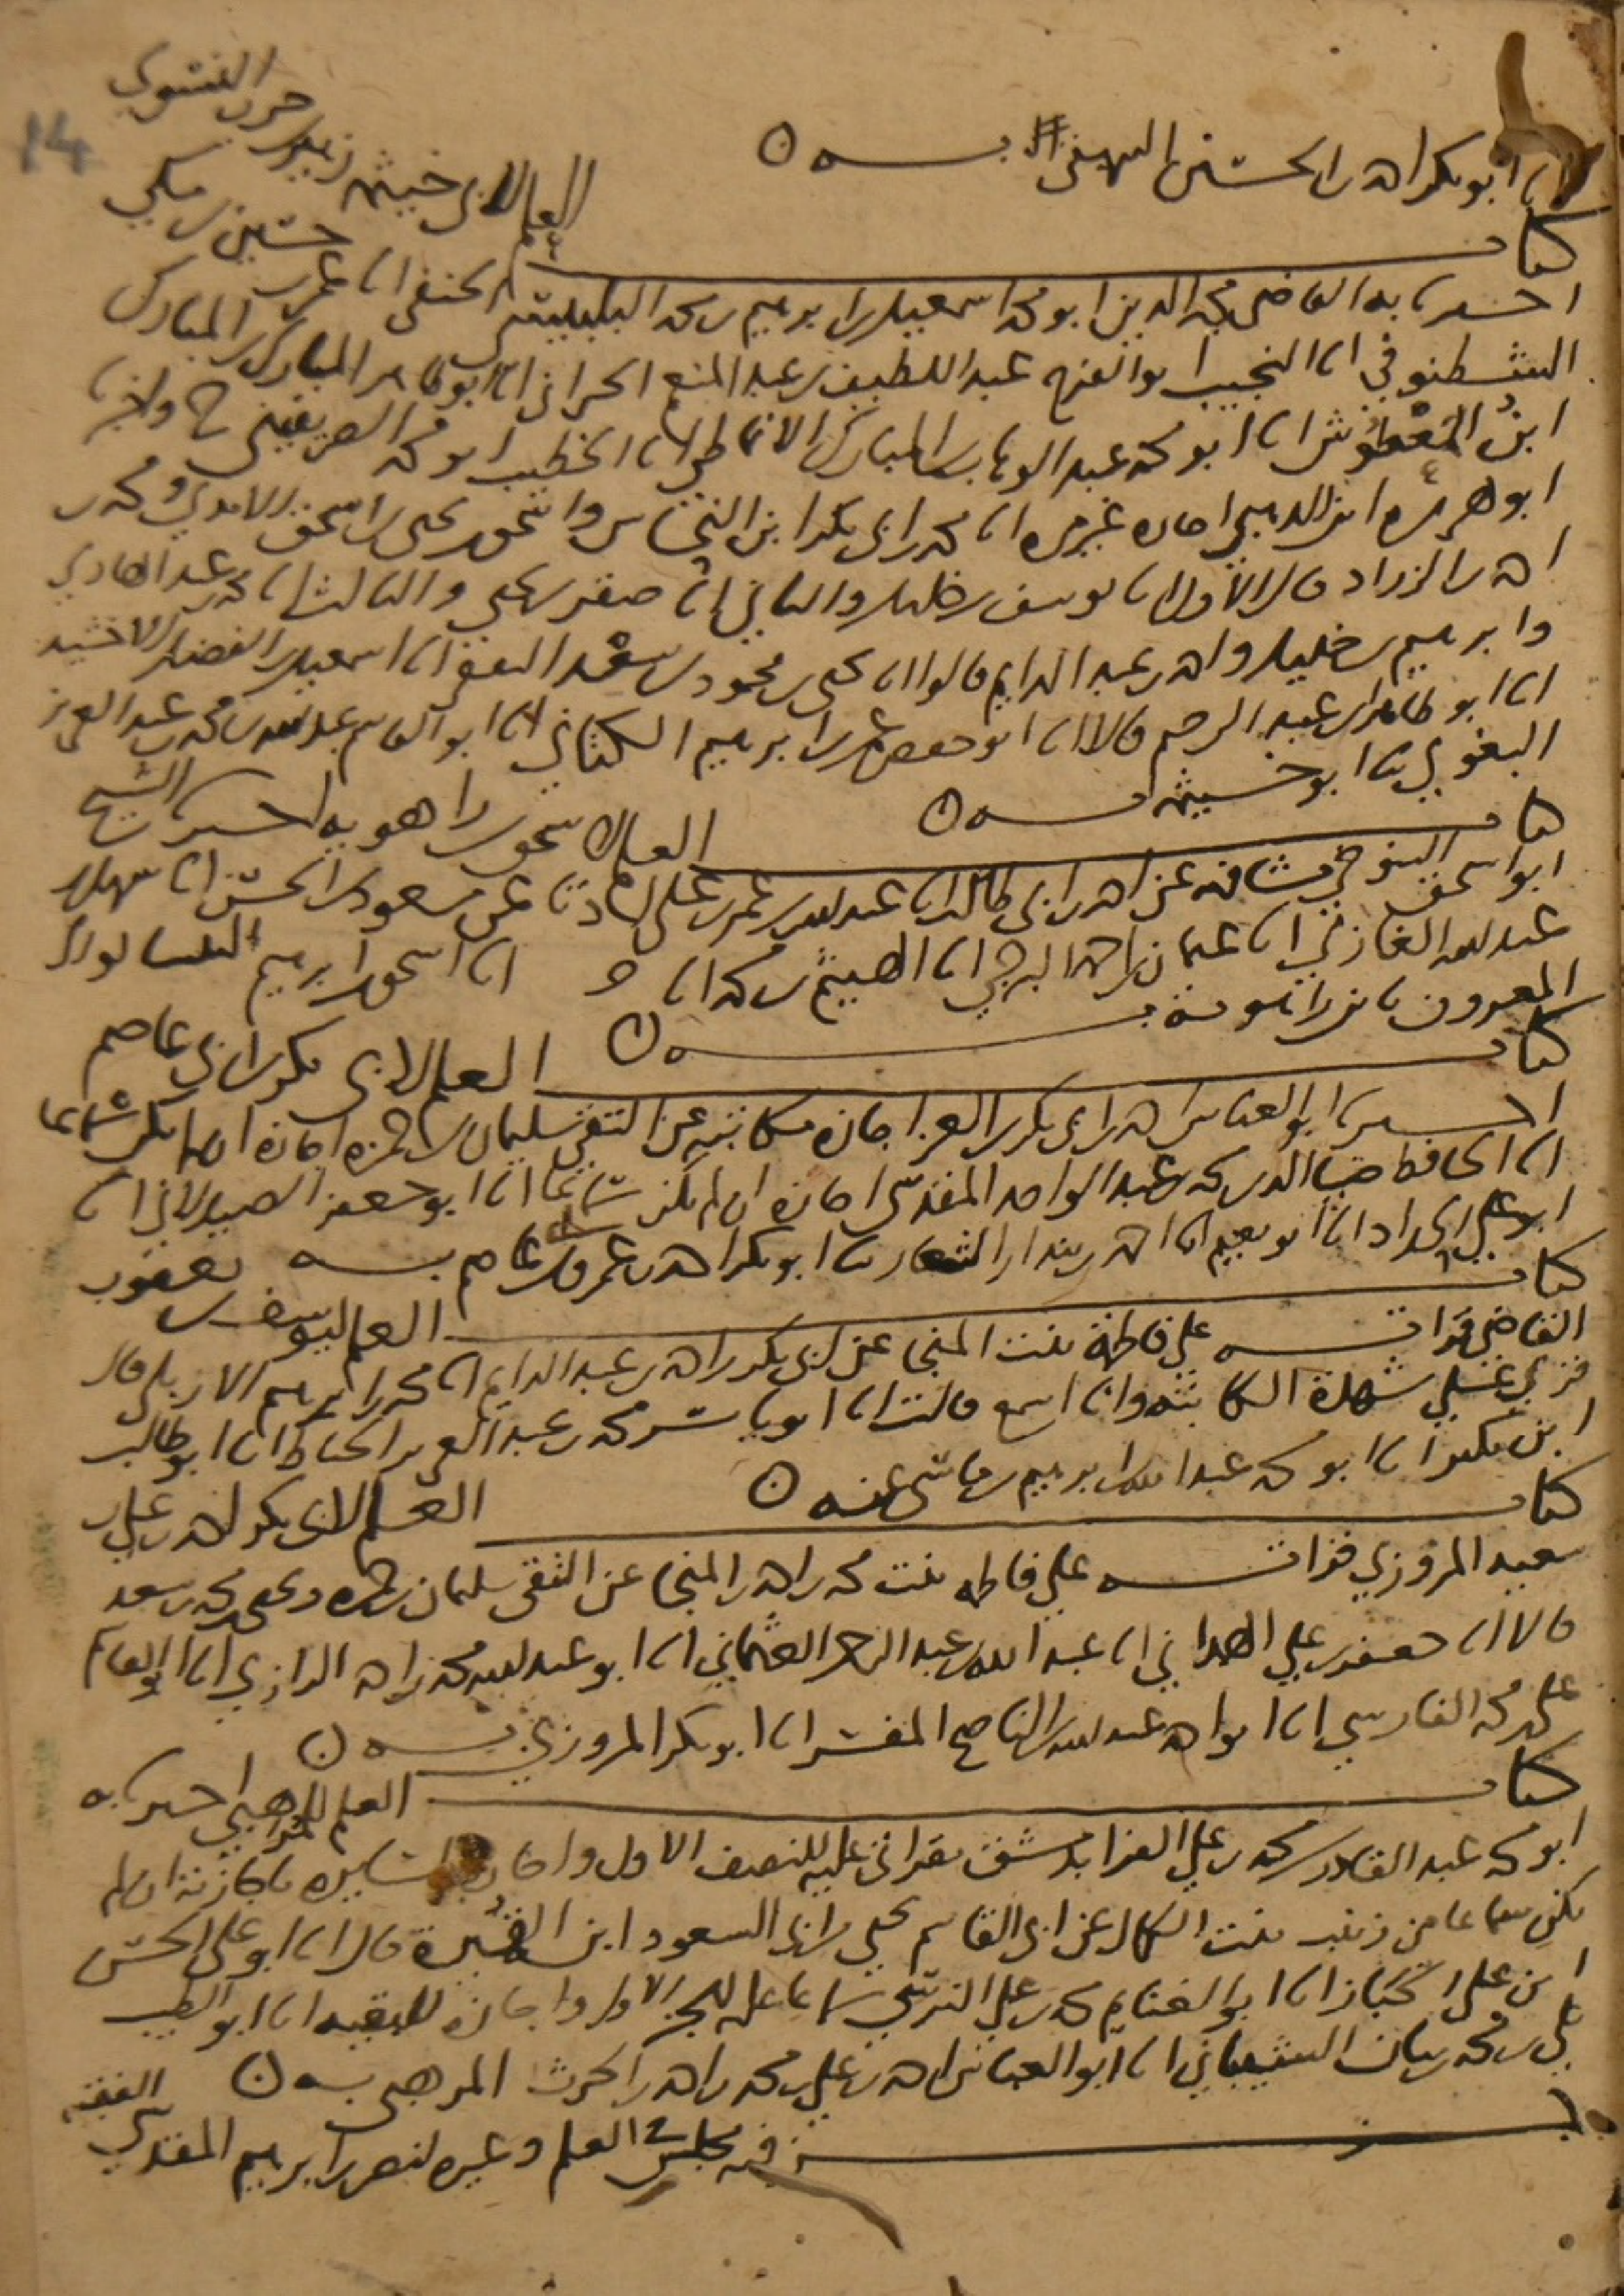 انا ابو بكر احمد بن الحسين البيهقي به
كتاب العلم لابي خيثمة زهير بن حرب النسوي
اخبرنا به القاضي مجد الدين ابو محمد اسمعيل بن ابرهيم بن محمد البلبيسي الحنفي انا عمر بن حسين بن مكي
الشطنوفي انا النجيب ابو الفرج عبد اللطيف بن عبد المنعم الحراني انا ابو طاهر المبارك بن المبارك
ابن المعطوش انا ابو محمد عبد الوهاب بن المبارك الانماطي انا الخطيب ابو محمد الصريفيني ح واخبرنا
ابو هريرة ابن الذهبي اجازة غير مرة انا محمد بن ابي بكر ابن النحاس واسحق بن يحيى بن اسحق الامدي ومحمد بن
احمد بن الزراد قال الاول انا يوسف بن خليل والثاني انا صقر بن يحيى والثالث انا محمد بن عبد الهادي
وابرهيم بن خليل واحمد بن عبد الدايم قالوا انا يحيى بن محمود بن سعد الثقفي انا اسمعيل بن الفضل الاخشيد
انا ابو طاهر بن عبد الرحيم قالا انا ابو حفص عمر بن ابرهيم الكتاني انا ابو القاسم عبد الله بن محمد بن عبد العزيز
البغوي ثنا ابو خيثمة به
كتاب العلم لاسحق بن راهويه اخبرنا الشيخ
ابو اسحق التنوخي مشافهة عن احمد بن ابي طالب انا عبد الله بن عمر بن علي عن مسعود بن الحسن انا سهل بن
عبد الله الغازي انا عثمان بن احمد البرجي انا الهيثم بن محمد انا انا اسحق بن ابرهيم
المعروف بابن راهويه به
كتاب العلم لابي بكر بن ابي عاصم
اخبرنا ابو العباس احمد بن ابي بكر بن العز اجازة مكاتبة عن التقي سليمان بن حمزة اجازة ان لم يكن سماعا
انا الحافظ ضيا الدين محمد بن عبد الواحد المقدسي اجازة ان لم يكن سماعا انا ابو جعفر الصيدلاني انا
ابو علي الحداد انا ابو نعيم انا احمد بن بندار الشعار ثنا ابو بكر احمد بن عمرو بن ابي عاصم به
كتاب العلم ليوسف بن يعقوب
القاضي قراته على فاطمة بنت المنجا عن ابي بكر بن احمد بن عبد الدايم انا محمد بن ابرهيم الاربلي قال
قري على شهدة الكاتبة وانا اسمع قالت انا ابو ياسر محمد بن عبد العزيز الخياط انا ابو طالب
ابن بكير انا ابو محمد عبد الله بن ابرهيم بن ماسي عنه
كتاب العلم لابي بكر احمد بن علي بن
سعيد المروزي قراته على فاطمه بنت محمد بن احمد بن المنجا عن التقي سليمان بن حمزة ويحيى بن محمد بن سعد
قالا انا جعفر بن علي الهمداني انا عبد الله بن عبد الرحمن العثماني انا ابو عبد الله محمد بن احمد الرازي انا ابو القاسم
علي بن محمد الفارسي انا ابو احمد عبد الله بن الناصح المفسر انا ابو بكر المروزي به
كتاب العلم للمرهبي اخبرنا به
ابو محمد عبد القادر بن محمد بن علي الفرا بدمشق بقراتي عليه للنصف الاول واجازة لسايره باجازته ان لم
يكن سماعا من زينب بنت الكمال عن ابي القاسم يحيى بن ابي السعود ابن القميرة قال انا ابو علي الحسن
ابن علي الخباز انا ابو الغنايم محمد بن علي النرسي سماعا عليه للجز الاول واجازة للبقيه انا ابو الطيب
علي بن محمد بن بنان الشيباني انا ابو العباس احمد بن علي بن محمد بن احمد بن الحرث المرهبي به
جز فيه مجلس العلم وغيره لنصر بن ابرهيم المقدسي الفقيه